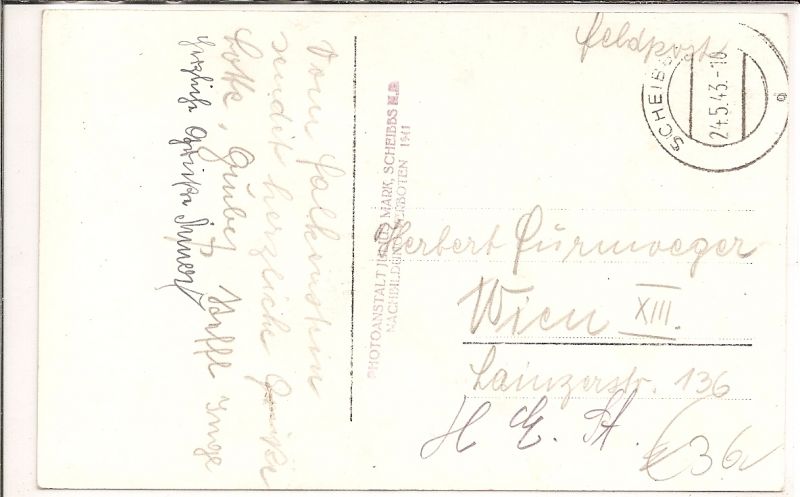 Feldpost
SCHEIBBS
24.5.43.-18
Vom Falkenstein
sendet herzliche Grüße
Lotte, Gruber Steffl Inge
herzliche Grüße
PHOTOANSTALT JULIUS MARK, SCHEIBBS N.D.
NACHBILDUNG VERBOTEN 1941
Herbert Fürnweger
Wien XIII.
Lainzerstr. 136
H E. St.
36